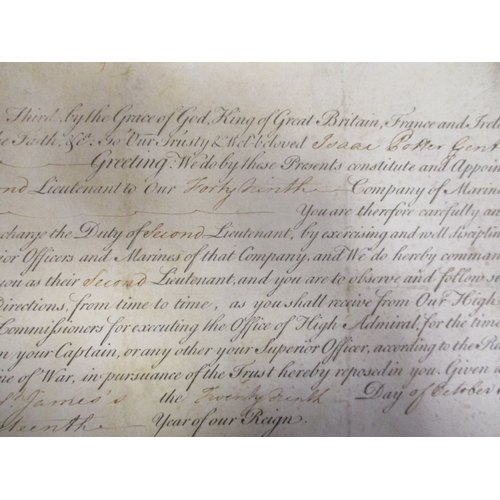 Third, by the Grace of God, King of Great Britain, France and Irel
he Faith, &c: To Our Trusty & Wel-beloved Isaac Potter Gent
Greeting: We do by these Presents constitute and Appoint
nd Lieutenant to Our Forty Ninth Company of Marine
You are therefore carefully an
charge the Duty of Second Lieutenant, by exercising and well disciplin
ior Officers and Marines of that Company, and We do hereby comman
you as their Second Lieutenant, and you are to observe and follow s
Directions, from time to time, as you shall receive from Our High
Commissioners for executing the Office of High Admiral, for the tim
m your Captain, or any other your Superior Officer, according to the Ru
ne of War, in pursuance of the Trust hereby reposed in you. Given a
St James's the Twenty Ninth Day of October
teenth Year of our Reign.